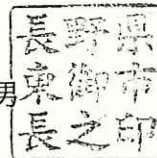 男
長野県
東御市
長之印